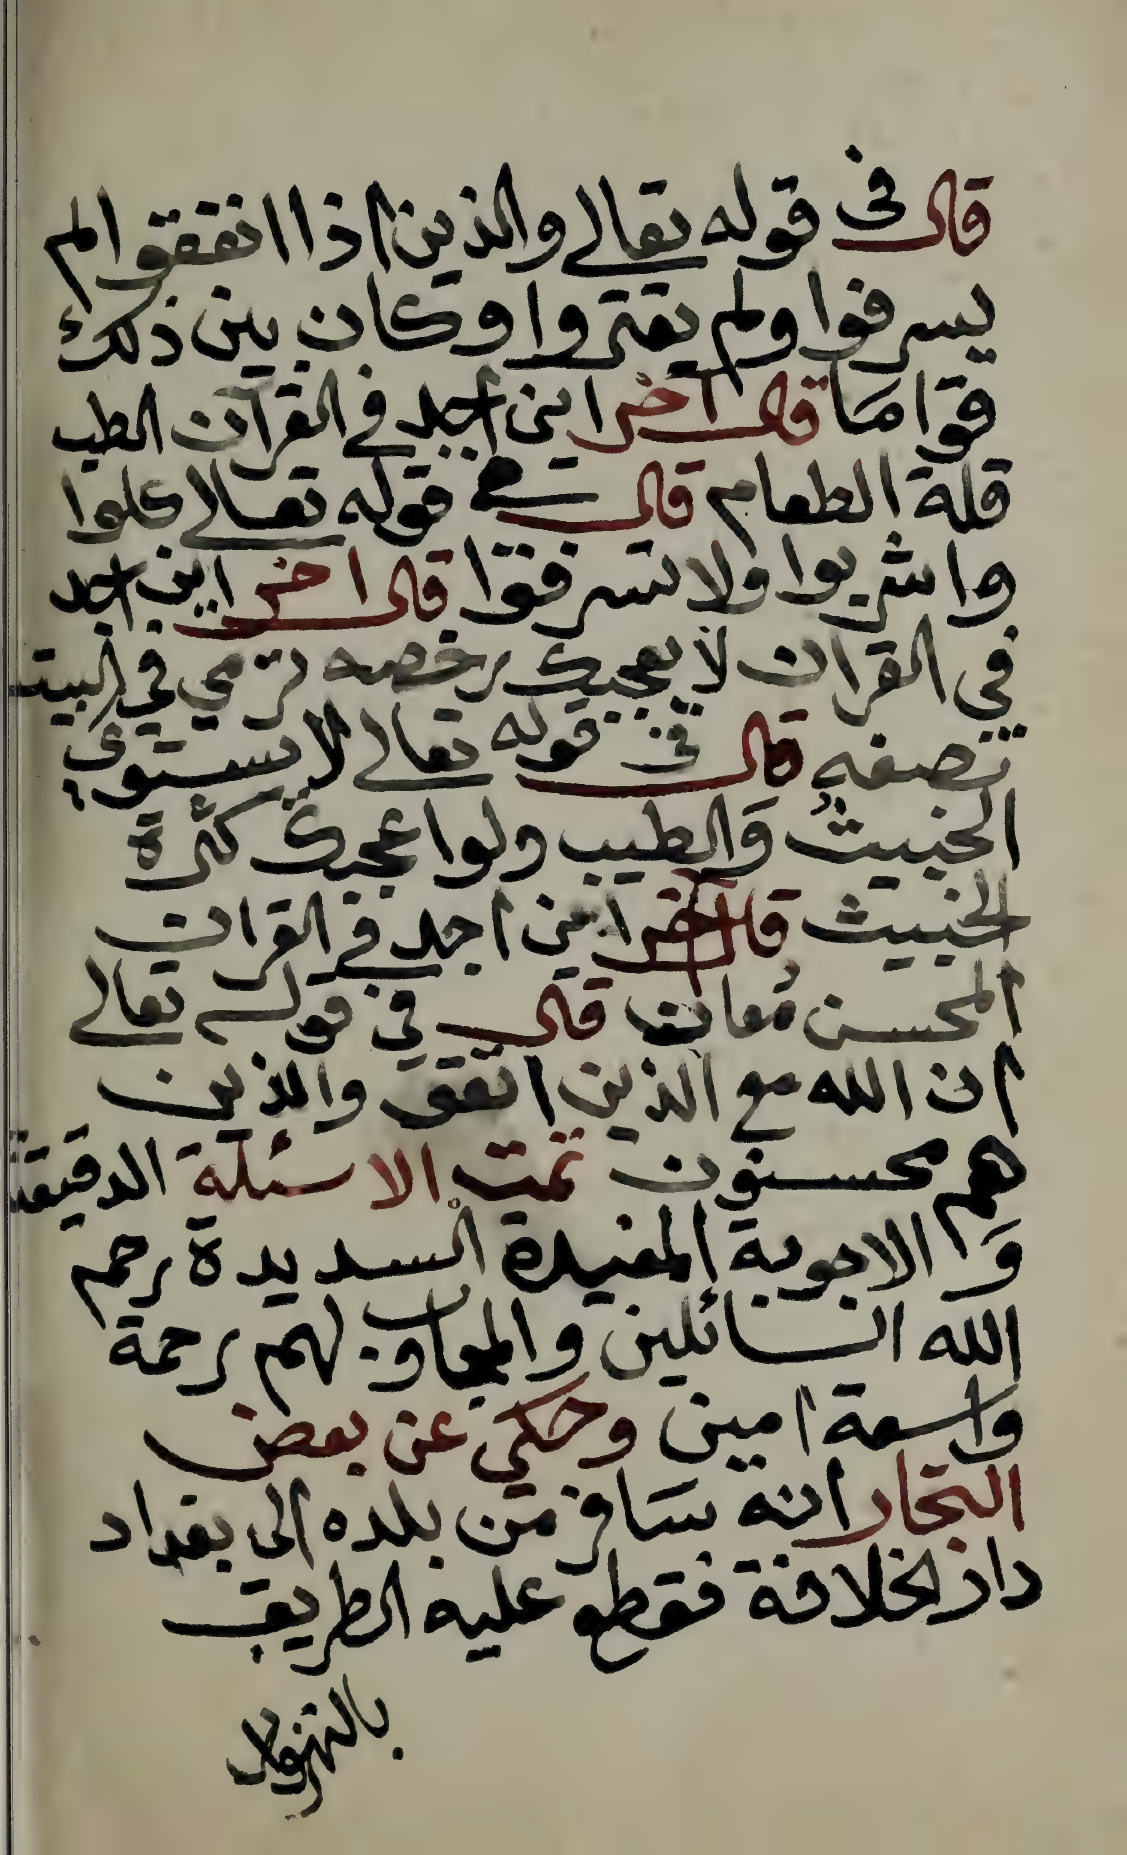 قال فى قوله تعالے والذين اذا انفقوا لم
يسرفوا ولم يقتروا وكان بين ذلك
قواما قال آخر اين اجد في القرآن الطب
قلة الطعام قال في قوله تعالے كلوا
واشربوا ولا تسرفوا قال اخر اين اجد
في القران لا يعجبك رخصه ترمي في البيت
نصفه قال فى قوله تعالے لا يستوي
الخبيث والطيب ولو اعجبك كثرة
الخبيث قال آخر اين اجد في القران
المحسن معان قال في قوله تعالے
ان الله مع الذين اتقو والذين
هم محسنون تمت الاسئلة الدقيقة
والاجوبة المفيدة السديدة رحم
الله السائلين والمجاوب لهم رحمة
واسعة امين وحكي عن بعض
التجار انه سافر من بلده الى بغداد
دار الخلافة فقطع عليه الطريق